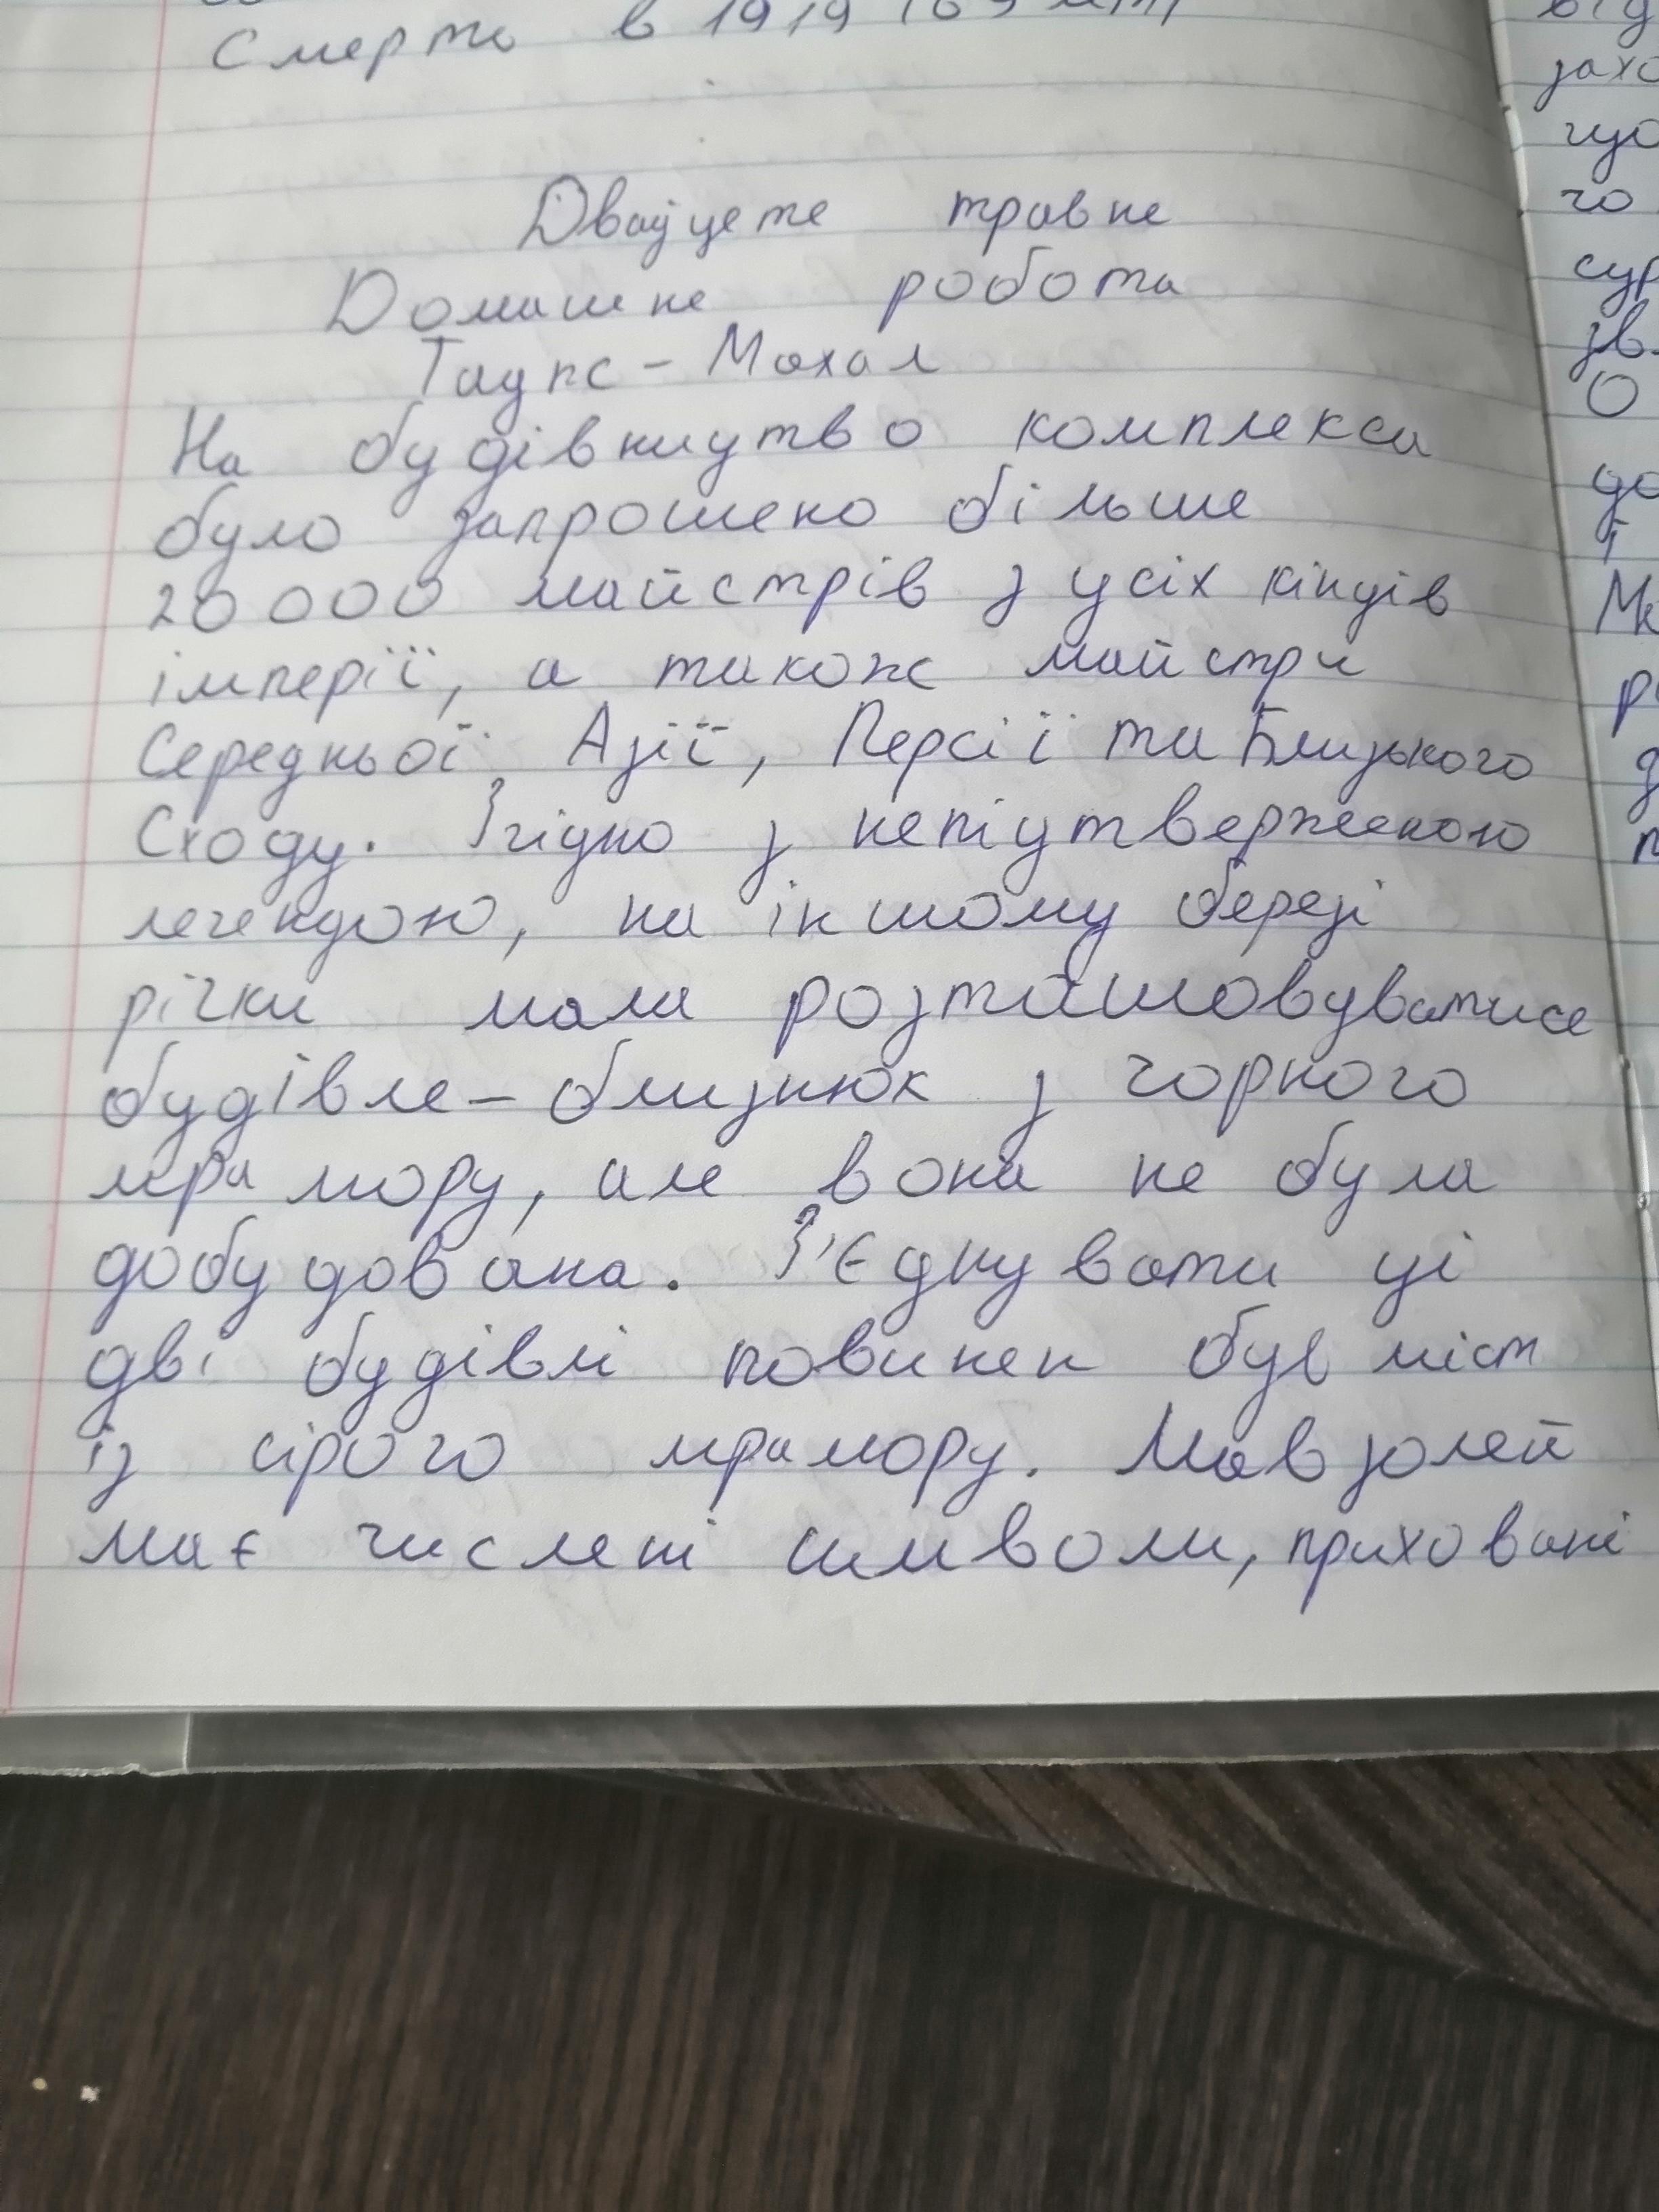 Смерть в 1919 (69 літ)
Двадцяте травня
Домашня робота
Тадж-Махал
На будівництво комплекса
було запрошено більше
20000 майстрів з усіх кінців
імперії, а також майстри
Середньої Азії, Персії та Близького
Сходу. Згідно з непідтвердженою
легендою, на іншому березі
річки мала розташовуватися
будівля-близнюк з чорного
мрамору, але вона не була
добудована. З'єднувати ці
дві будівлі повинен був міст
із сірого мрамору. Мавзолей
має числені символи, приховані